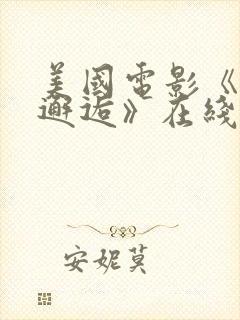 美國電影《
邂逅》在綫
安妮莫